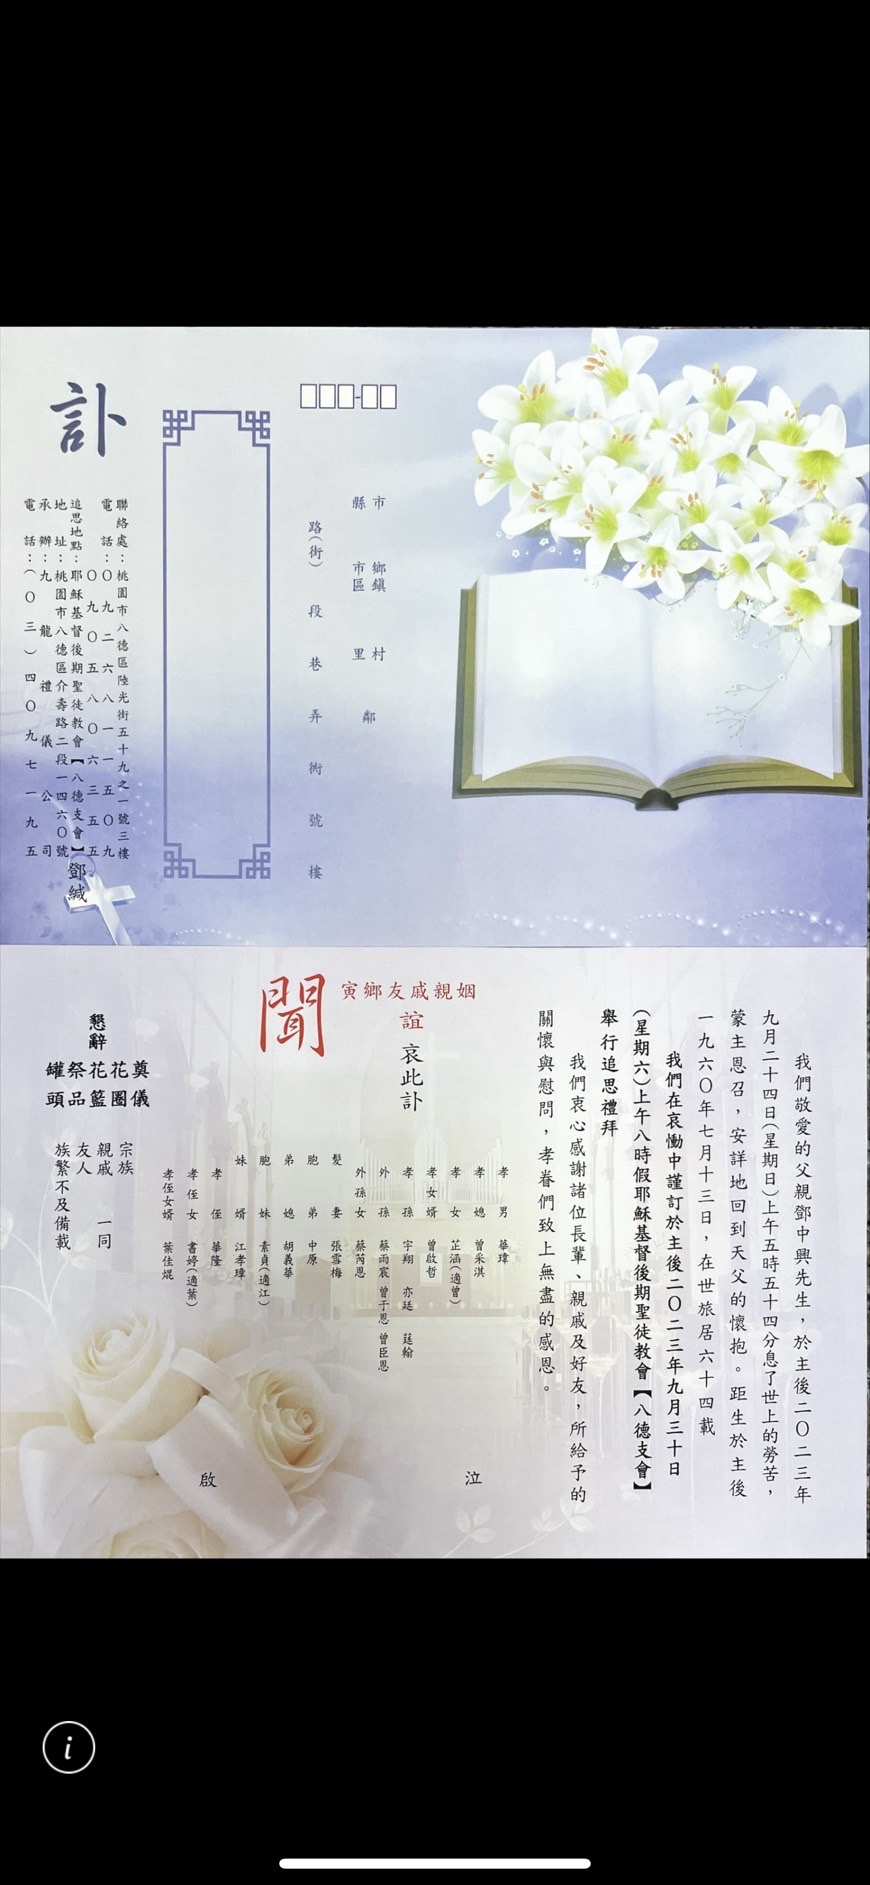 訃
聯絡處：桃園市八德區陸光街五十九之一號三樓
電話：０９２６８１１５０９
０９０５８０６３５５
追思地點：耶穌基督後期聖徒教會【八德支會】
地址：桃園市八德區介壽路二段一四六０號
承辦：九龍禮儀公司
電話：（０三）四０九七一九五
鄧緘
縣市
鄉鎮市區
村里
鄰
路（街）段巷弄衖號樓
我們敬愛的父親鄧中興先生，於主後二０二三年
九月二十四日（星期日）上午五時五十四分息了世上的勞苦，
蒙主恩召，安詳地回到天父的懷抱。距生於主後
一九六０年七月十三日，在世旅居六十四載
我們在哀慟中謹訂於主後二０二三年九月三十日
（星期六）上午八時假耶穌基督後期聖徒教會【八德支會】
舉行追思禮拜
我們衷心感謝諸位長輩、親戚及好友，所給予的
關懷與慰問，孝眷們致上無盡的感恩。
寅鄉友戚親姻
誼 哀此訃
聞
孝男 華瑋
孝媳 曾采淇
孝女 芷涵（適曾）
孝女婿 曾啟哲
孝孫 宇翔 亦廷 莛翰
外孫 蔡雨宸 曾于恩 曾臣恩
外孫女 蔡芮恩
髮妻 張雪梅
胞弟 中原
弟媳 胡義華
胞妹 素貞（適江）
妹婿 江孝瑋
孝侄 華隆
孝侄女 書婷（適葉）
孝侄女婿 葉佳焜
泣
啟
宗族
親戚 一同
友人
族繁不及備載
懇辭
奠儀
花圈
花籃
祭品
罐頭